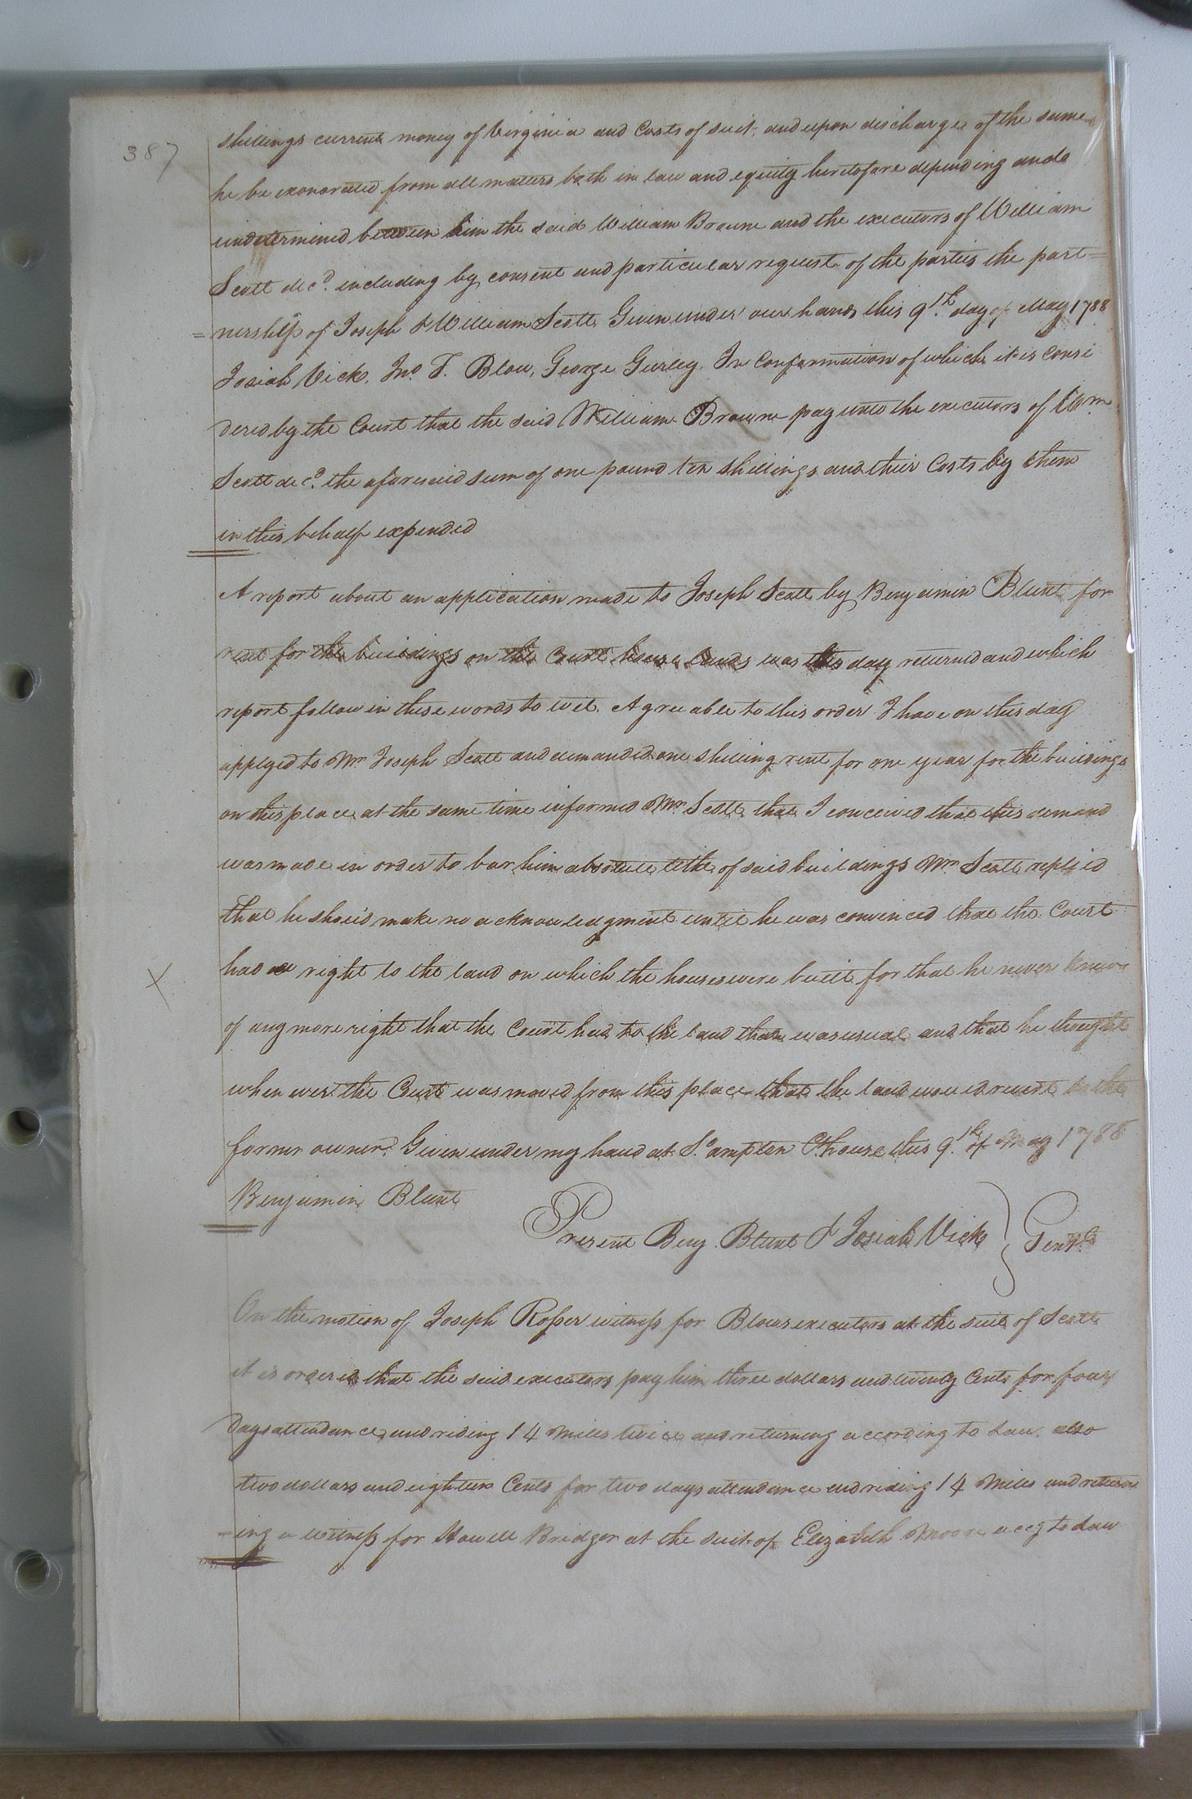 387
shillings current money of Virginia and Costs of suit, and upon discharge of the same
he be exonorated from all matters both in law and equity heretofore depending and
undetermined between him the said William Browne and the executors of William
Scott decd. including by consent and particular request of the parties the part=
=nership of Joseph & William Scott Given under our hands this 9th. day of May 1788
Josiah Vick, Jno. T. Blow, George Gurley. In Conformation of which it is consi
dered by the Court that the said William Browne pay unto the executors of Wm
Scott decd. the aforesaid sum of one pound ten shillings and their Costs by them
in this behalf expended
A report about an application made to Joseph Scott by Benjamin Blunt for
rent for the buildings on the Court house lands was this day returned and which
report follow in these words to wit. Agreeable to this order I have on this day
applyed to Mr Joseph Scott and demanded one shilling rent for one year for the buildings
on this place at the same time informed Mr. Scott that I conceived that this demand
was made in order to bar him absolute title of said buildings Mr. Scott replied
that he should make no acknowledgment until he was convinced that the Court
X
had a right to the land on which the houses were built for that he never knew
of any more right that the Court had to the land than was usual and that he thought
when ever the Court was moved from this place that the land would revert to the
former owner. Given under my hand at S.ampton C.house this 9th. of May 1788
Benjamin Blunt
Present Benj. Blunt & Josiah Vick } Gent.
On the motion of Joseph Rosser witness for Blows executors at the suit of Scott
it is ordered that the said executors pay him three dollars and twenty Cents for four
days attendance and riding 14 Miles twice and returning according to Law. also
two dollars and eighteen Cents for two days attendance and riding 14 Miles and return
=ing a witness for Howell Bridger at the suit of Elizabeth Moore accg to Law